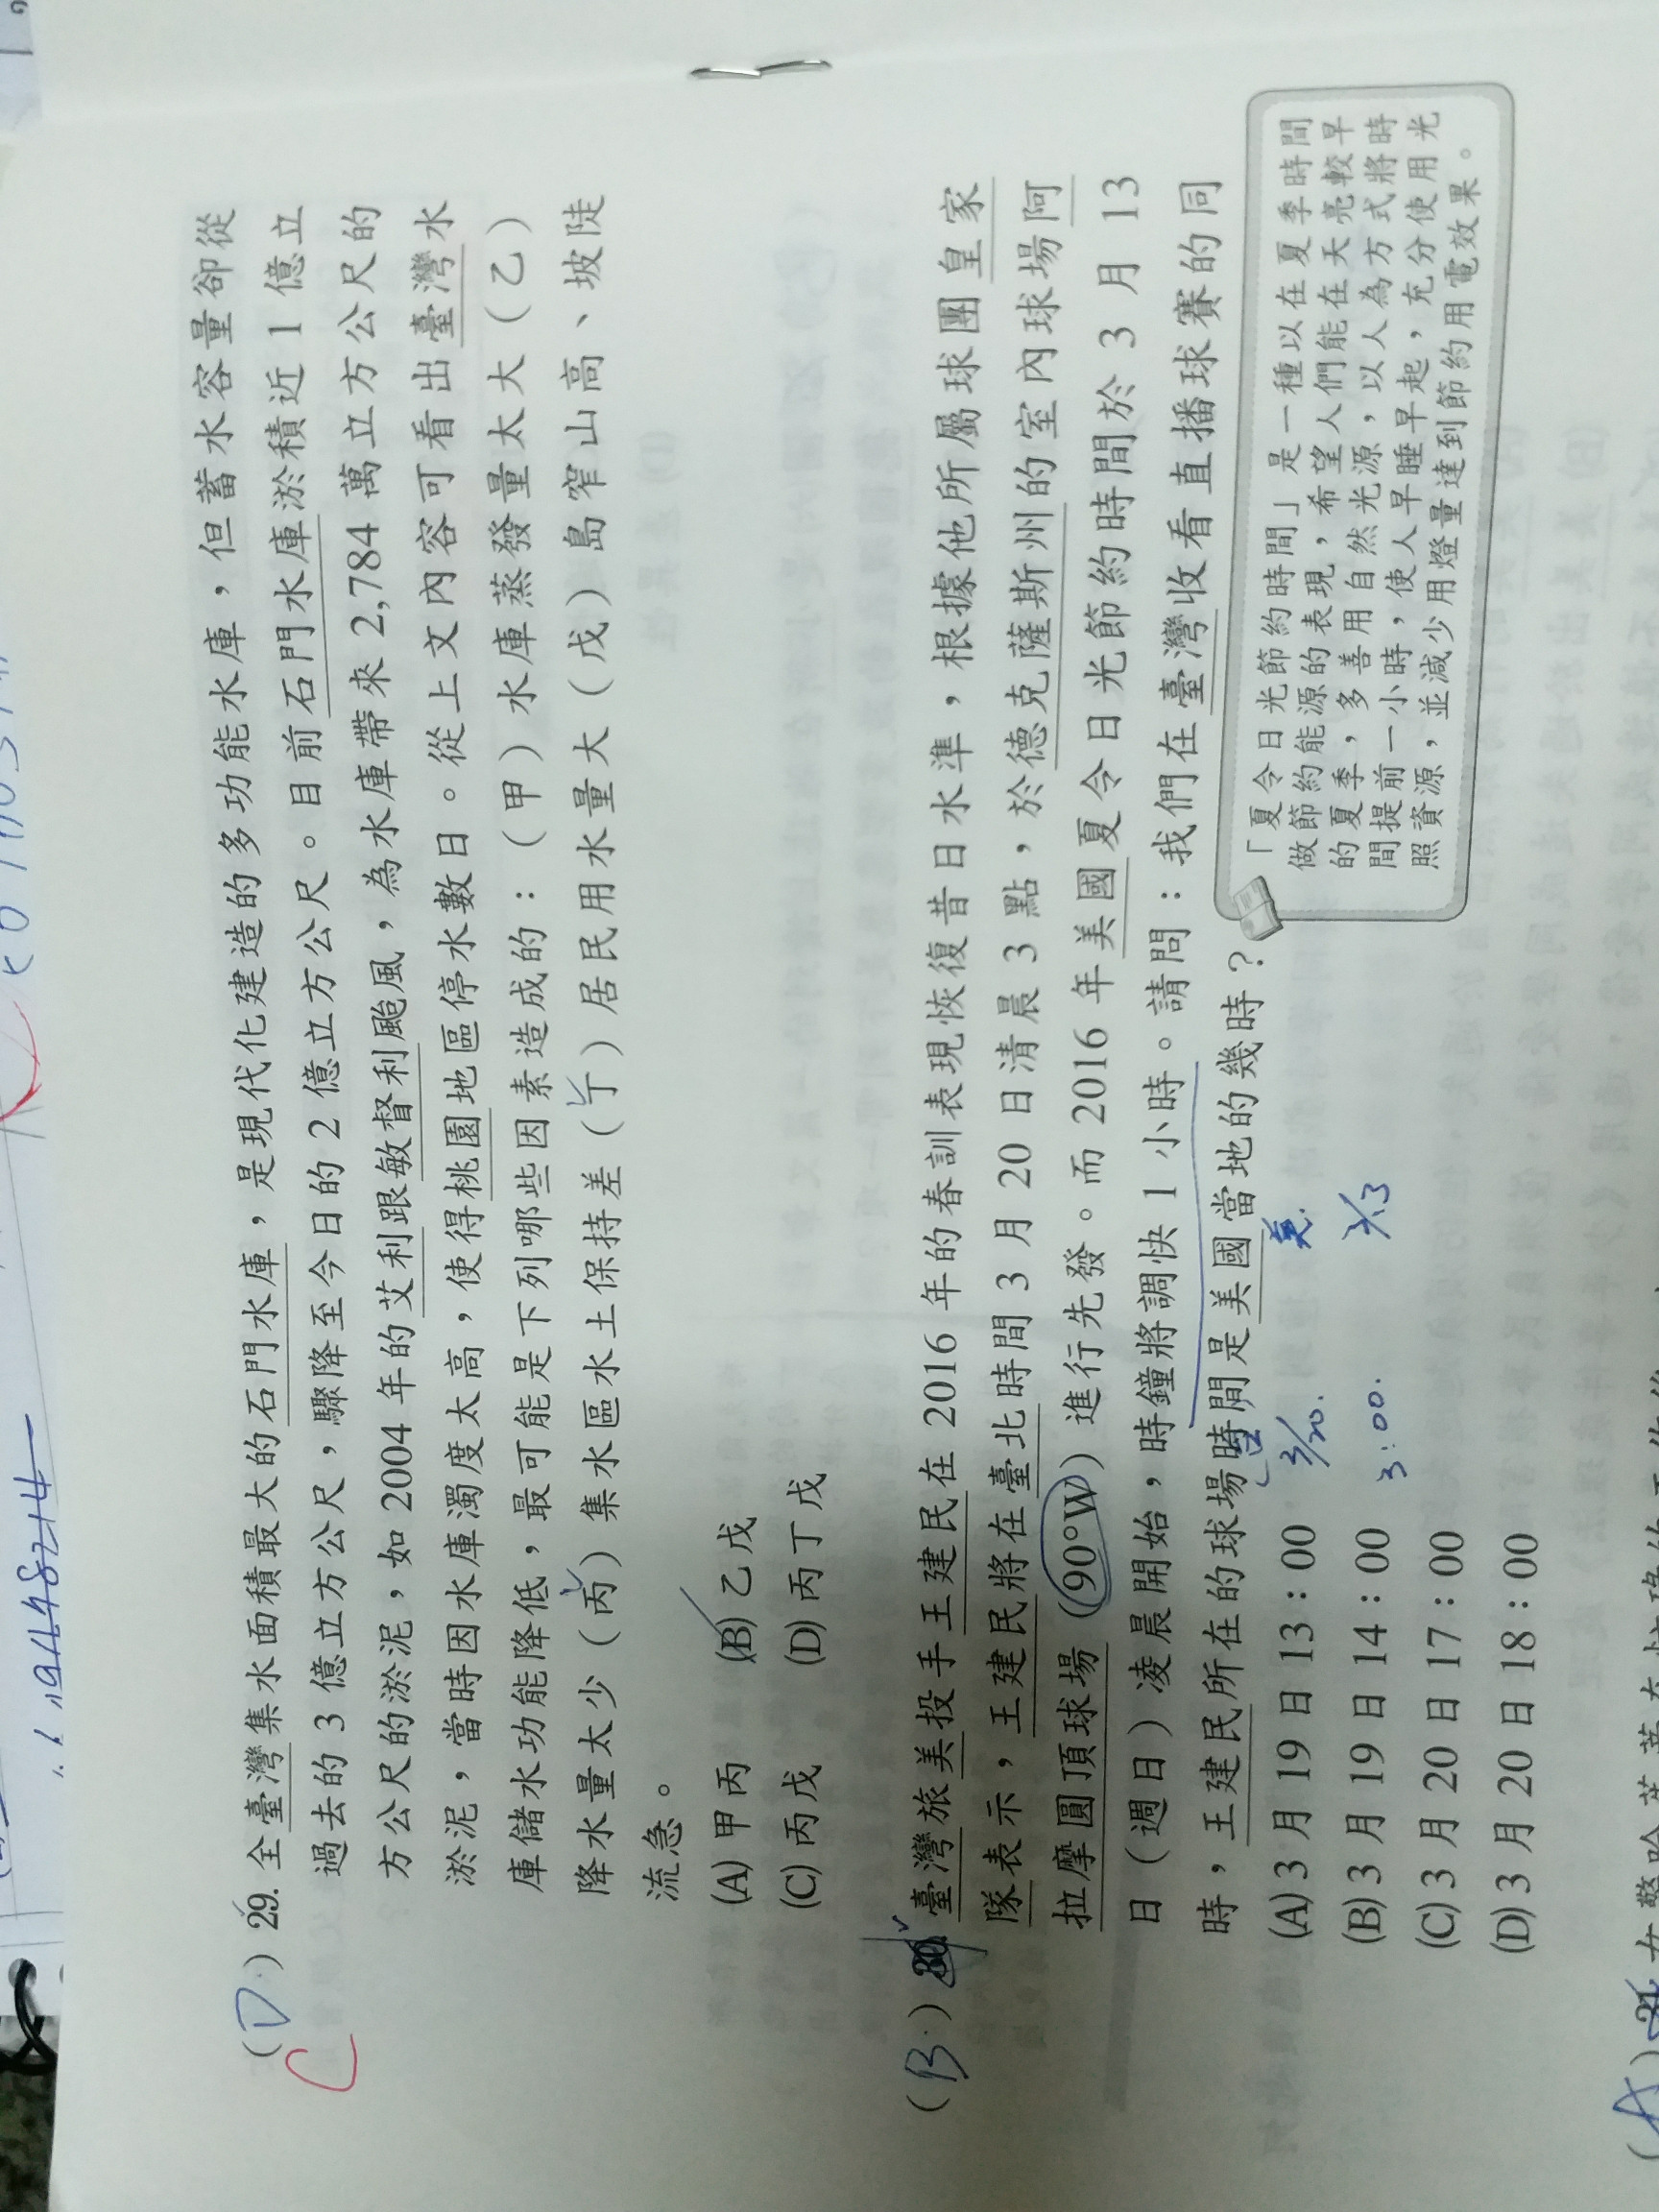 (D.) 29. 全臺灣集水面積最大的石門水庫，是現代化建造的多功能水庫，但蓄水容量卻從
C 過去的 3 億立方公尺，驟降至今日的 2 億立方公尺。目前石門水庫淤積近 1 億立
方公尺的淤泥，如 2004 年的艾利跟敏督利颱風，為水庫帶來 2,784 萬立方公尺的
淤泥，當時因水庫濁度太高，使得桃園地區停水數日。從上文內容可看出臺灣水
庫儲水功能降低，最可能是下列哪些因素造成的：（甲）水庫蒸發量太大（乙）
降水量太少（丙）集水區水土保持差（丁）居民用水量大（戊）島窄山高、坡陡
流急。
(A)甲丙 (B)乙戊
(C)丙戊 (D)丙丁戊
(B.) 30. 臺灣旅美投手王建民在 2016 年的春訓表現恢復昔日水準，根據他所屬球團皇家
隊表示，王建民將在臺北時間 3 月 20 日清晨 3 點，於德克薩斯州的室內球場阿
拉摩圓頂球場（90°W）進行先發。而 2016 年美國夏令日光節約時間於 3 月 13
日（週日）凌晨開始，時鐘將調快 1 小時。請問：我們在臺灣收看直播球賽的同
時，王建民所在的球場時間是美國當地的幾時？
(A)3 月 19 日 13：00
(B)3 月 19 日 14：00
(C)3 月 20 日 17：00
(D)3 月 20 日 18：00
3/20. 美.
3:00. 3/13
「夏令日光節約時間」是一種以在夏季時間
做節約能源的表現，希望人們能在天亮較早
的夏季，多善用自然光源，以人為方式將時
間提前一小時，使人早睡早起，充分使用光
照資源，並減少用燈量達到節約用電效果。
(A) 31.